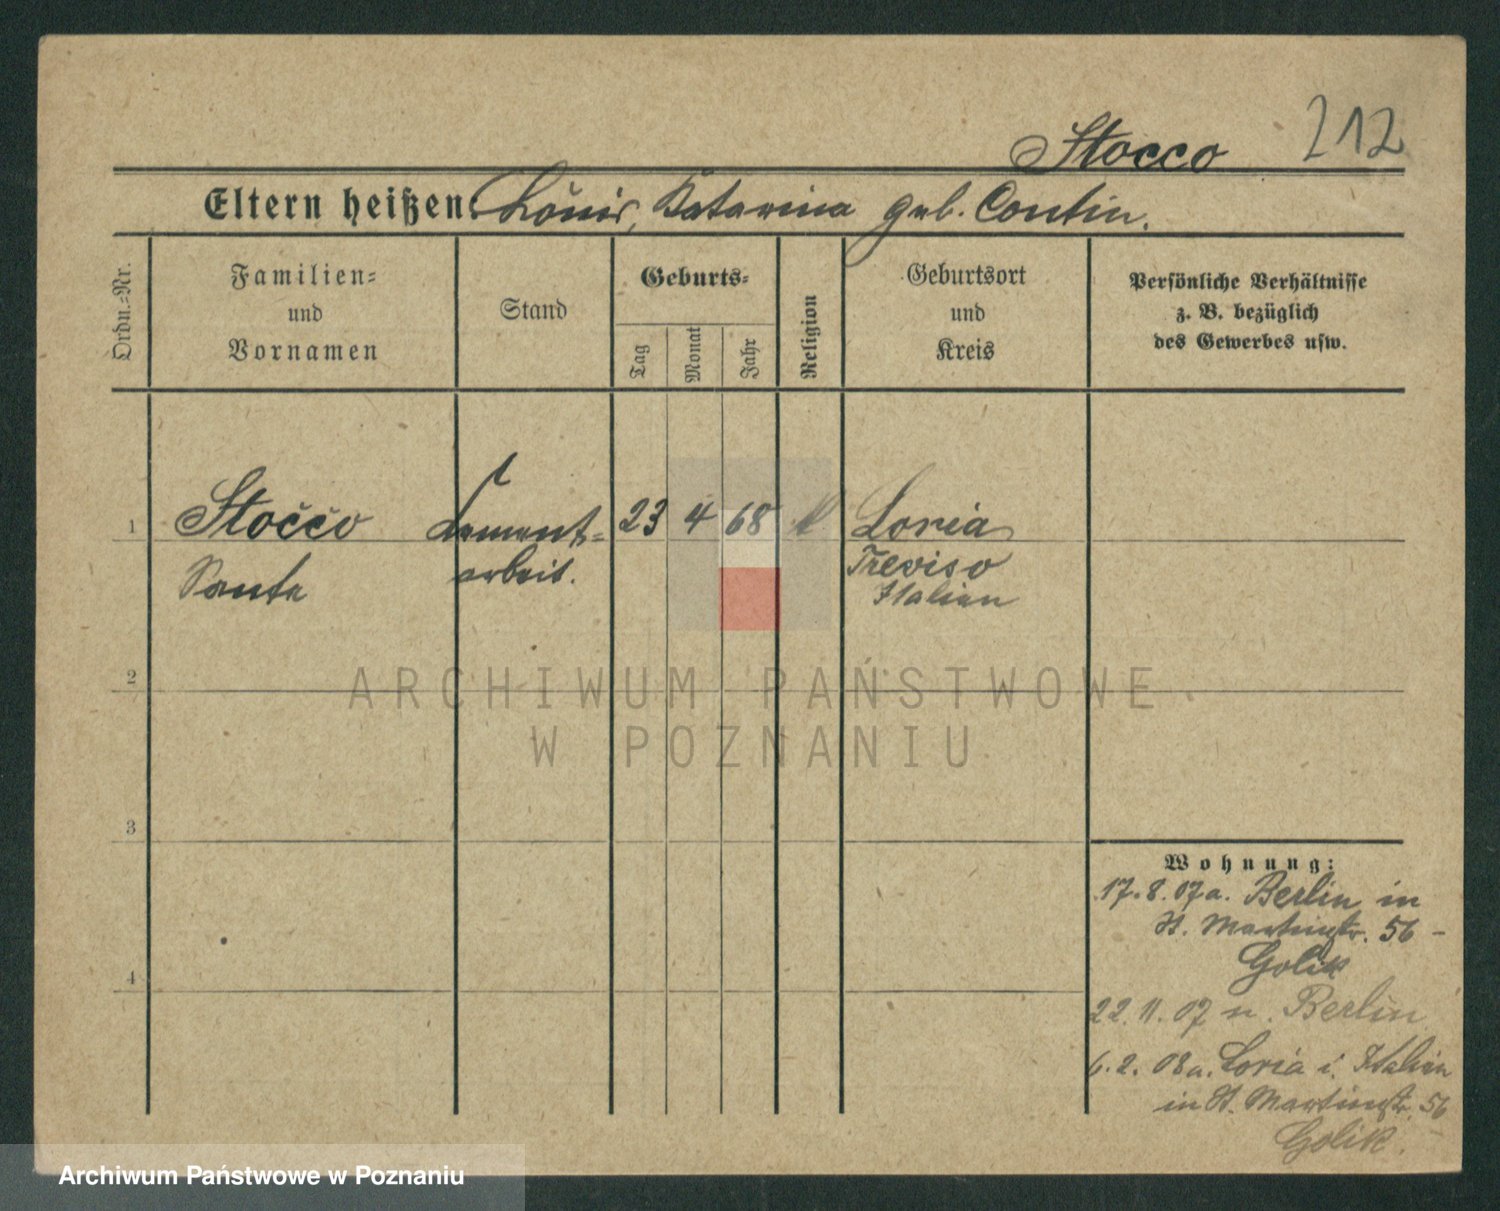 Stocco 212
Eltern heißen: Louis, Katarina geb. Contin.
Ordn.-Nr.
Familien-
und
Vornamen
Stand
Geburts-
Tag
Monat
Jahr
Religion
Geburtsort
und
Kreis
Persönliche Verhältnisse
z. B. bezüglich
des Gewerbes usw.
1 Stocco Zement- 23 4 68 k Loria
Sante arbeit. Treviso
Italien
2
3
4
Wohnung:
17.8.07 a. Berlin in
St. Martinstr. 56 -
Golik
22.11.07 n. Berlin
6.2.08 a. Loria i. Italien
in St. Martinstr. 56
Golik.
ARCHIWUM PAŃSTWOWE
W POZNANIU
Archiwum Państwowe w Poznaniu